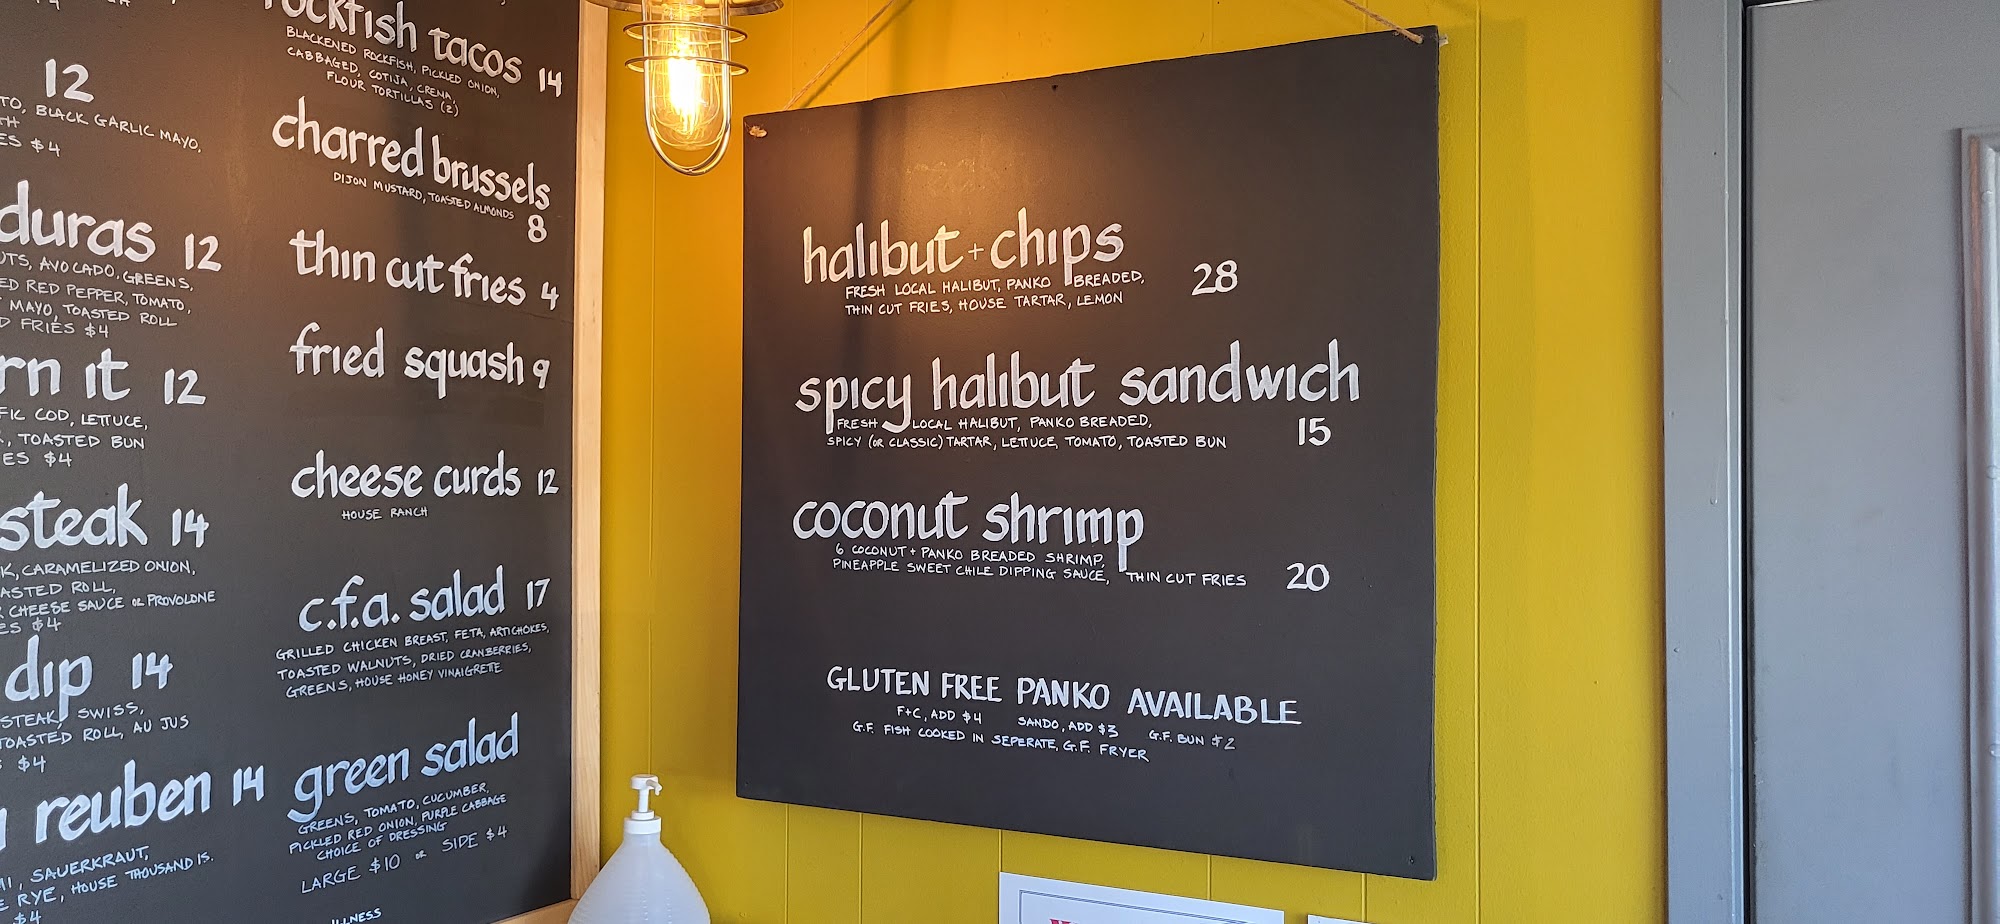 12
BLACK GARLIC MAYO,
$4
duras 12
AVOCADO, GREENS,
RED PEPPER, TOMATO,
MAYO, TOASTED ROLL
FRIES $4
rn it 12
COD, LETTUCE,
TOASTED BUN
$4
steak 14
CARAMELIZED ONION,
ROLL,
CHEESE SAUCE OR PROVOLONE
$4
dip 14
STEAK, SWISS,
TOASTED ROLL, AU JUS
$4
reuben 14
SAUERKRAUT,
RYE, HOUSE THOUSAND IS.
$4
rockfish tacos 14
BLACKENED ROCKFISH, PICKLED ONION,
CABBAGED, COTIJA, CREMA,
FLOUR TORTILLAS (2)
charred brussels
DIJON MUSTARD, TOASTED ALMONDS
8
thin cut fries 4
fried squash 9
cheese curds 12
HOUSE RANCH
c.f.a. salad 17
GRILLED CHICKEN BREAST, FETA, ARTICHOKES,
TOASTED WALNUTS, DRIED CRANBERRIES,
GREENS, HOUSE HONEY VINAIGRETTE
green salad
GREENS, TOMATO, CUCUMBER,
PICKLED RED ONION, PURPLE CABBAGE
CHOICE OF DRESSING
LARGE $10 OR SIDE $4
halibut + chips
FRESH LOCAL HALIBUT, PANKO BREADED,
THIN CUT FRIES, HOUSE TARTAR, LEMON
28
spicy halibut sandwich
FRESH LOCAL HALIBUT, PANKO BREADED,
SPICY (OR CLASSIC) TARTAR, LETTUCE, TOMATO, TOASTED BUN
15
coconut shrimp
6 COCONUT + PANKO BREADED SHRIMP,
PINEAPPLE SWEET CHILE DIPPING SAUCE, THIN CUT FRIES
20
GLUTEN FREE PANKO AVAILABLE
F+C, ADD $4 SANDO, ADD $3 G.F. BUN $2
G.F. FISH COOKED IN SEPERATE, G.F. FRYER